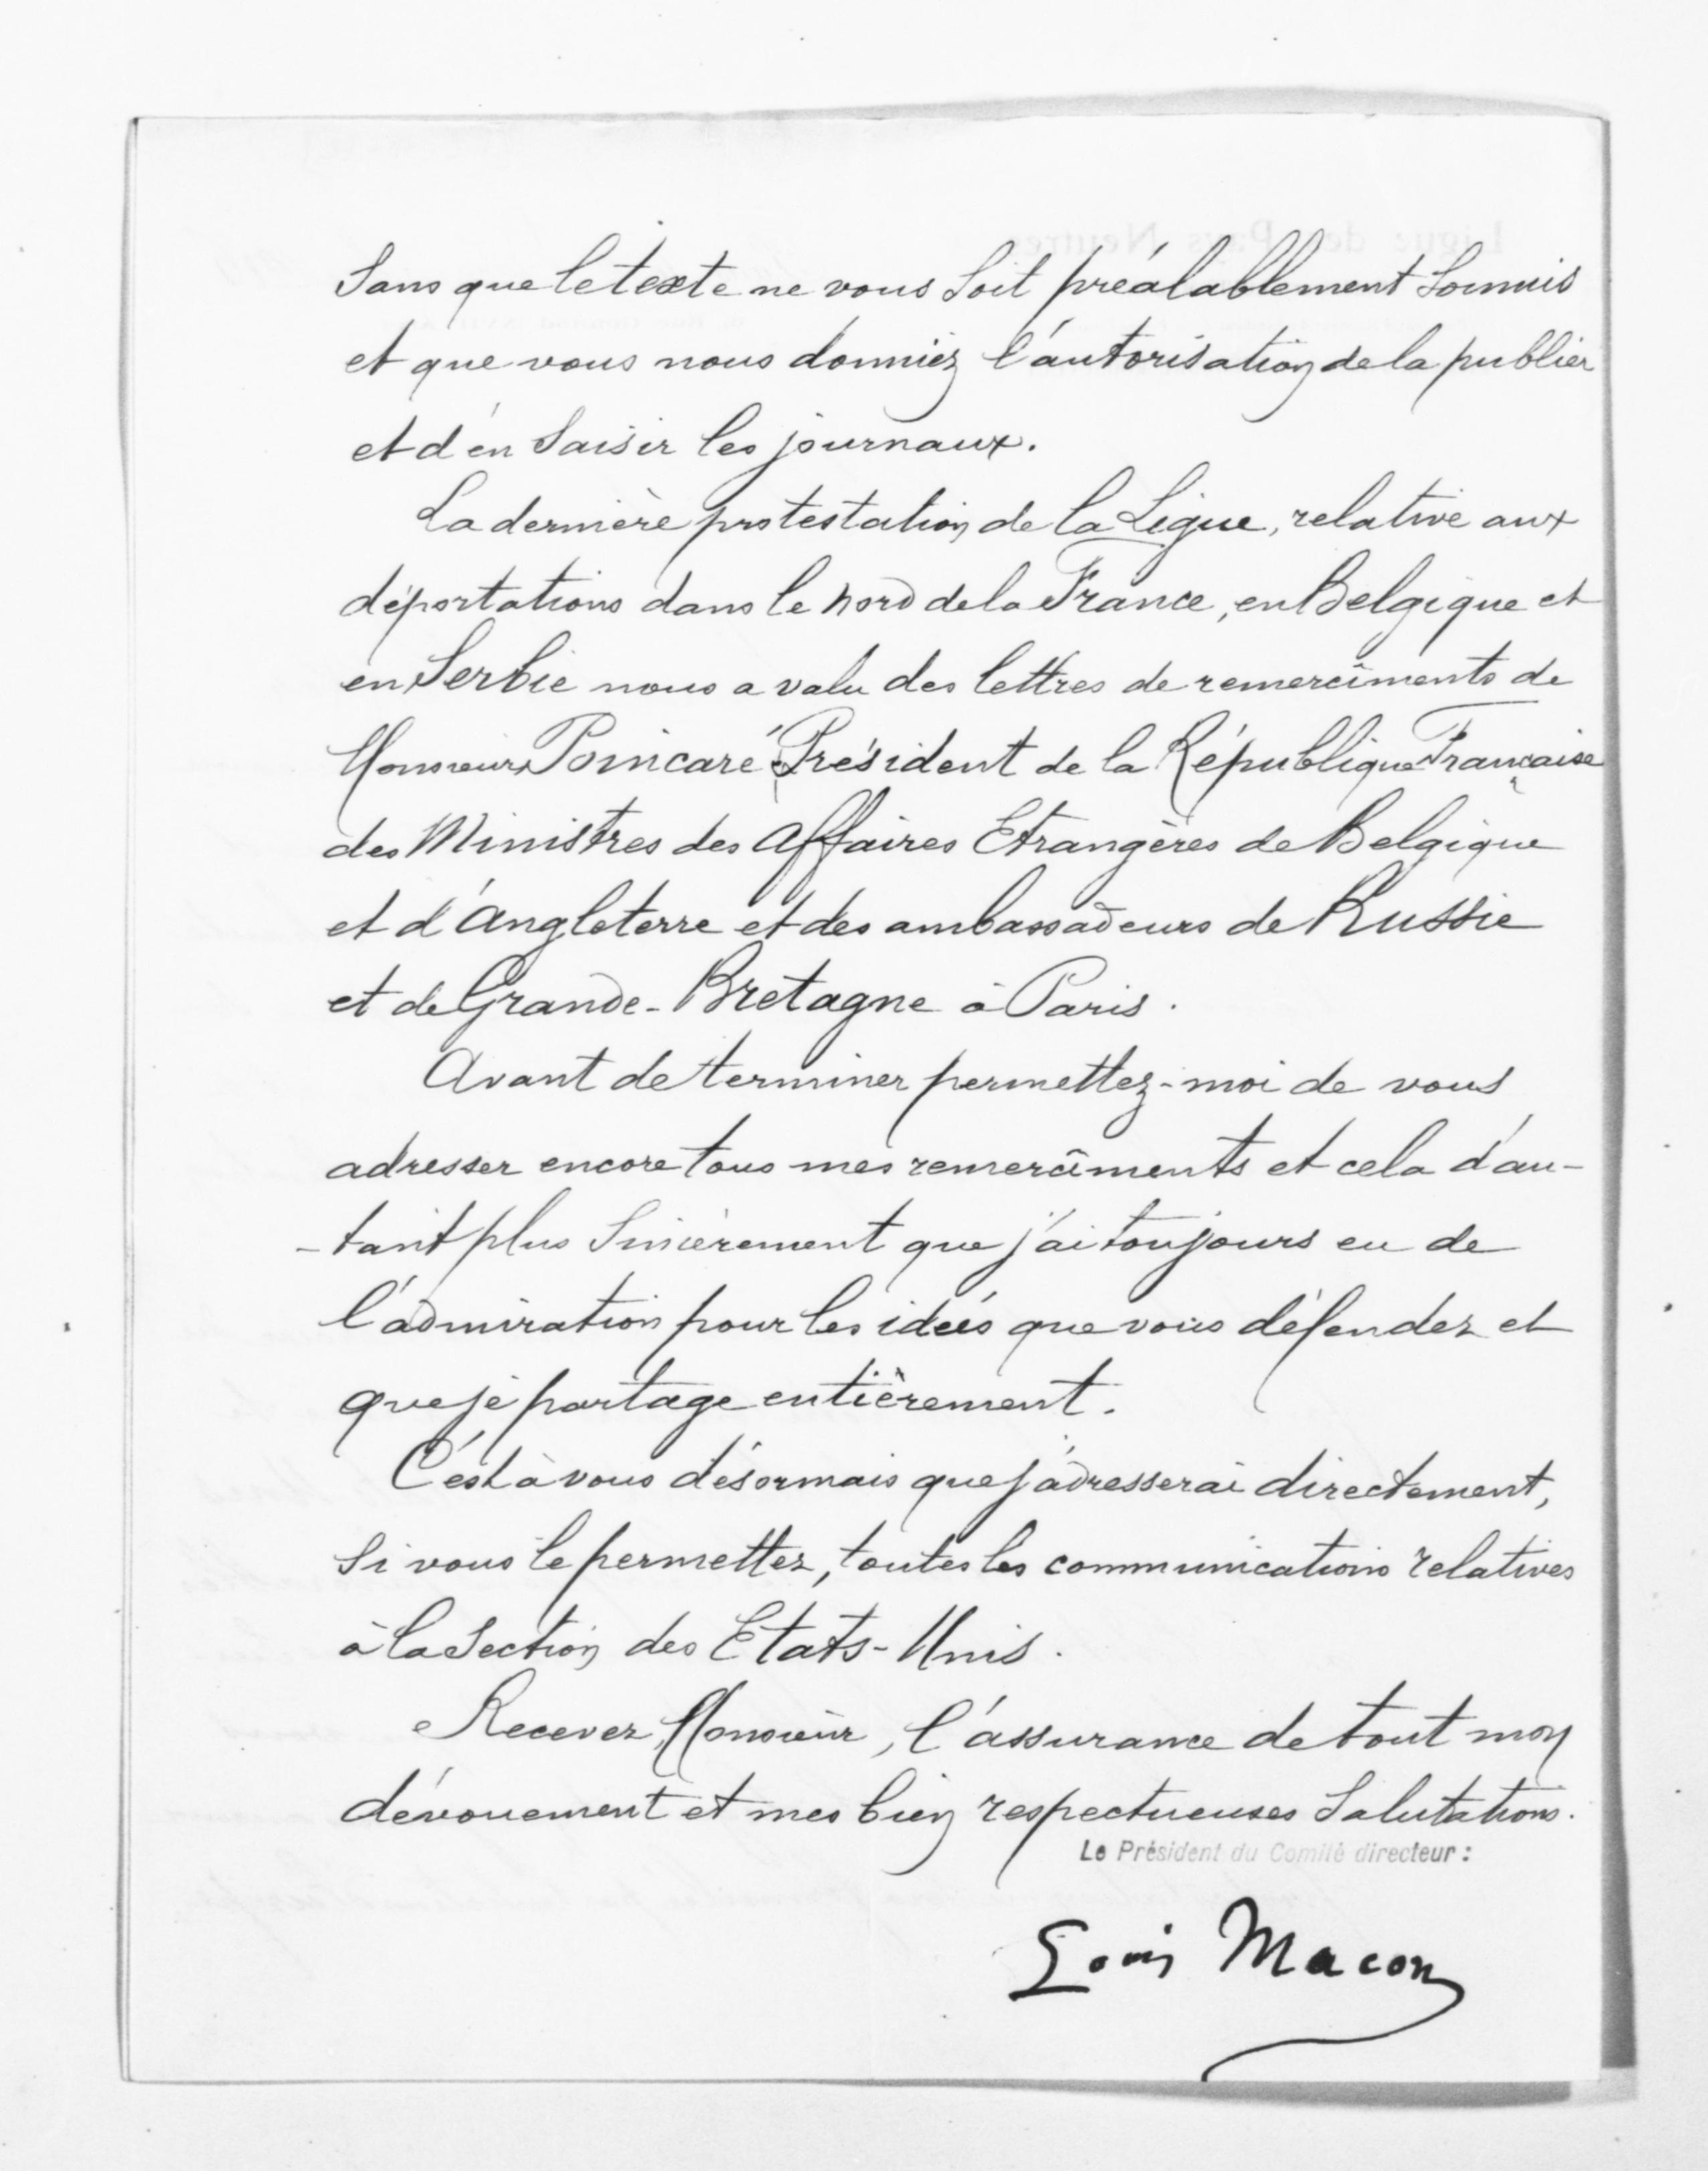 Sans que le texte ne vous soit préalablement soumis
et que vous nous donniez l'autorisation de la publier
et d'en saisir les journaux.
La dernière protestation de la Ligue, relative aux
déportations dans le nord de la France, en Belgique et
en Serbie nous a valu des lettres de remerciments de
Monsieur Poincaré Président de la République Française
des Ministres des Affaires Etrangères de Belgique
et d'Angleterre et des ambassadeurs de Russie
et de Grande-Bretagne à Paris.
Avant de terminer permettez-moi de vous
adresser encore tous mes remerciments et cela d'au-
-tant plus sincèrement que j'ai toujours eu de
l'admiration pour les idées que vous défendez et
que je partage entièrement.
C'est à vous désormais que j'adresserai directement,
si vous le permettez, toutes les communications relatives
à la Section des Etats-Unis.
Recevez, Monsieur, l'assurance de tout mon
dévouement et mes bien respectueuses salutations.
Le Président du Comité directeur :
Louis Macon